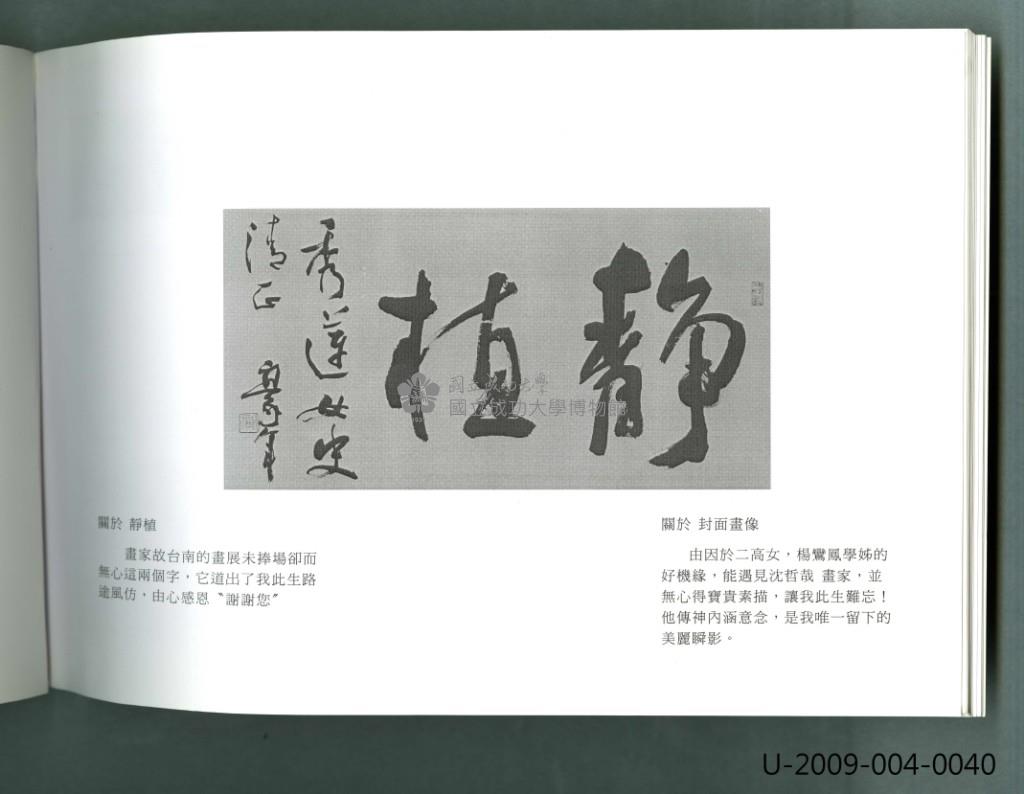 靜植
秀蓮女史
清正
豪年
國立成功大學
國立成功大學博物館
關於 靜植
畫家故台南的畫展未捧場卻而
無心這兩個字，它道出了我此生路
途風仿，由心感恩〝謝謝您〞
關於 封面畫像
由因於二高女，楊鸞鳳學姊的
好機緣，能遇見沈哲哉 畫家，並
無心得寶貴素描，讓我此生難忘！
他傳神內涵意念，是我唯一留下的
美麗瞬影。
U-2009-004-0040